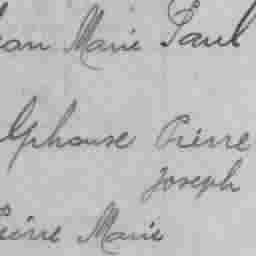 ean Marie Paul
lphonse Pierre
Joseph
ierre Marie